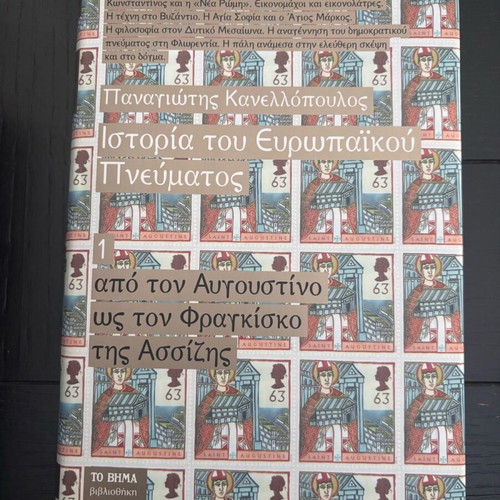 Κωνσταντίνος και η «Νέα Ρώμη». Εικονομάχοι και εικονολάτρες.
Η τέχνη στο Βυζάντιο. Η Αγία Σοφία και ο Άγιος Μάρκος.
Η φιλοσοφία στον Δυτικό Μεσαίωνα. Η αναγέννηση του δημοκρατικού
πνεύματος στη Φλωρεντία. Η πάλη ανάμεσα στην ελεύθερη σκέψη
και στο δόγμα.
Παναγιώτης Κανελλόπουλος
Ιστορία του Ευρωπαϊκού
Πνεύματος
1
από τον Αυγουστίνο
ως τον Φραγκίσκο
της Ασσίζης
63
SAINT AUGUSTINE
ΤΟ ΒΗΜΑ
βιβλιοθήκη